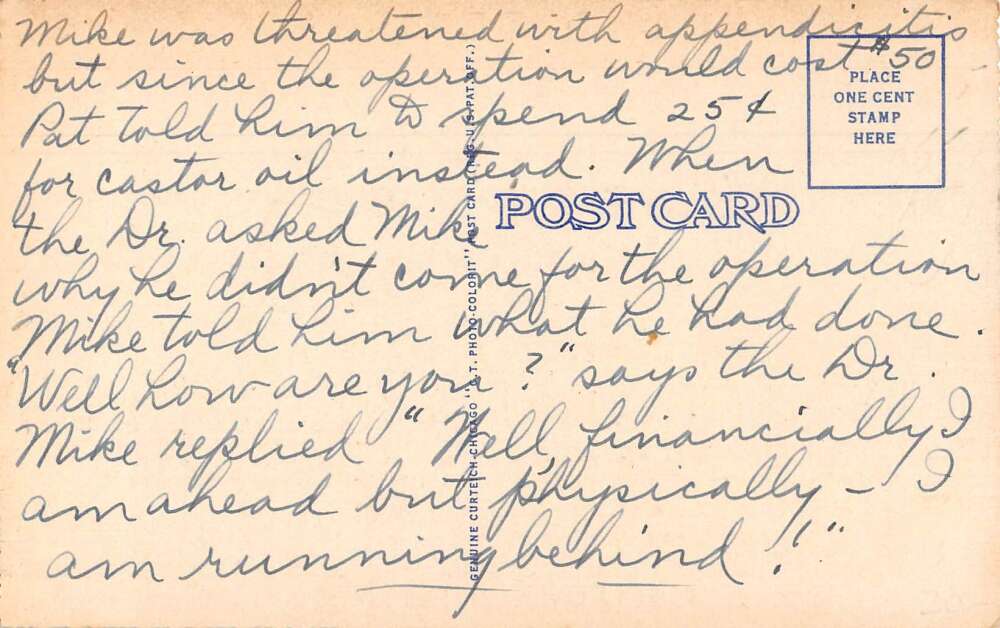 Mike was threatened with appendicitis
but since the operation would cost $50
Pat told him to spend 25¢
for castor oil instead. When
the Dr. asked Mike
why he didn't come for the operation
Mike told him what he had done.
"Well how are you?" says the Dr.
Mike replied "Well, financially I
am ahead but physically – I
am running behind!"
PLACE
ONE CENT
STAMP
HERE
POST CARD
GENUINE CURTEICH-CHICAGO "C.T. PHOTO-COLORIT" POST CARD (REG. U.S. PAT. OFF.)